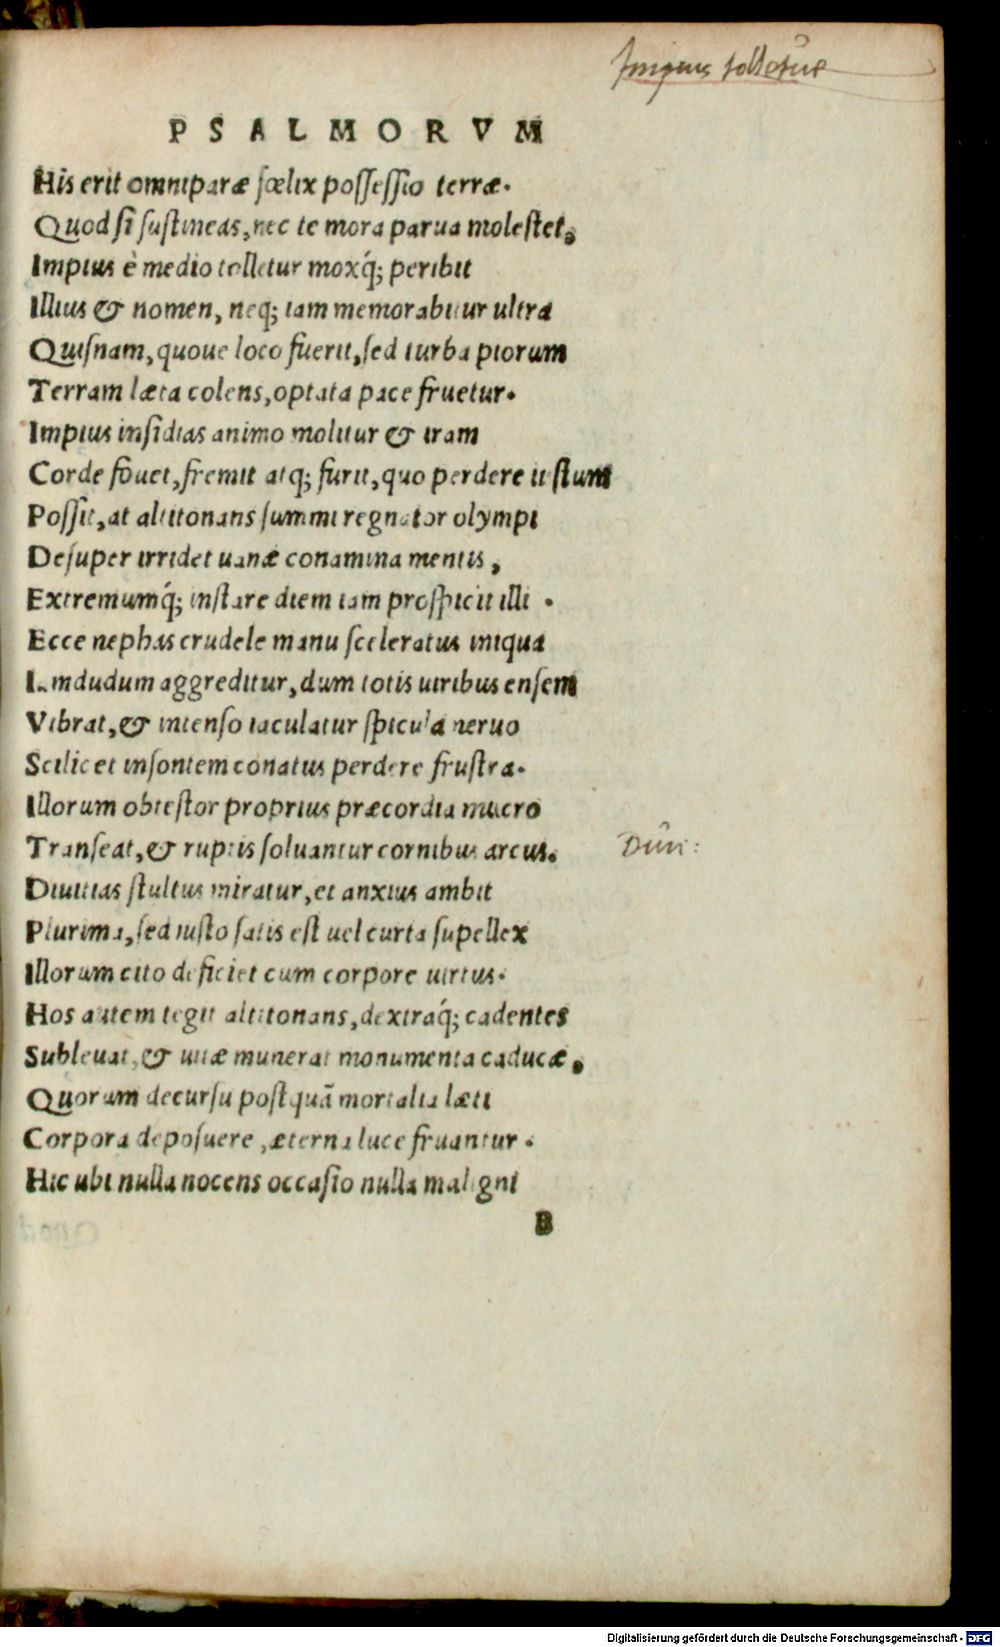 Impius tolletur
PSALMORVM
His erit omniparæ fœlix possessio terræ.
Quod si sustineas, nec te mora parua molestet,
Impius è medio tolletur moxq́; peribit
Illius & nomen, neq; iam memorabitur ultra
Quisnam, quoue loco fuerit, sed turba piorum
Terram læta colens, optata pace fruetur.
Impius insidias animo molitur & iram
Corde fouet, fremit atq; furit, quo perdere iustum
Possit, at altitonans summi regnator olympi
Desuper irridet uanæ conamina mentis,
Extremumq́; instare diem iam prospicit illi.
Ecce nephas crudele manu sceleratus iniqua
Iamdudum aggreditur, dum totis uiribus ensem
Vibrat, & intenso iaculatur spicula neruo
Scilicet insontem conatus perdere frustra.
Illorum obtestor proprius præcordia mucro
Transeat, & ruptis soluantur cornibus arcus.
Diuitias stultus miratur, et anxius ambit
Plurima, sed iusto satis est uel curta supellex
Illorum cito deficiet cum corpore uirtus.
Hos autem tegit altitonans, dextraq́; cadentes
Subleuat, & uitæ munerat monumenta caducæ,
Quorum decursu postquã mortalia læti
Corpora deposuere, æterna luce fruantur.
Hic ubi nulla nocens occasio nulla maligni
B
Digitalisierung gefördert durch die Deutsche Forschungsgemeinschaft - DFG